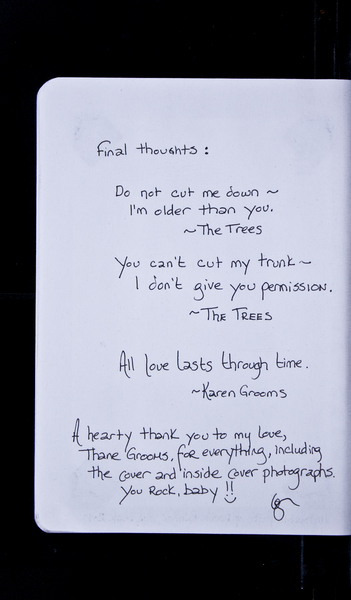 Final thoughts:
Do not cut me down ~
I'm older than you.
~The Trees
You can't cut my trunk ~
I don't give you permission.
~The Trees
All love lasts through time.
~Karen Grooms
A hearty thank you to my love,
Thane Grooms, for everything, including
the cover and inside cover photographs.
You Rock, baby!!